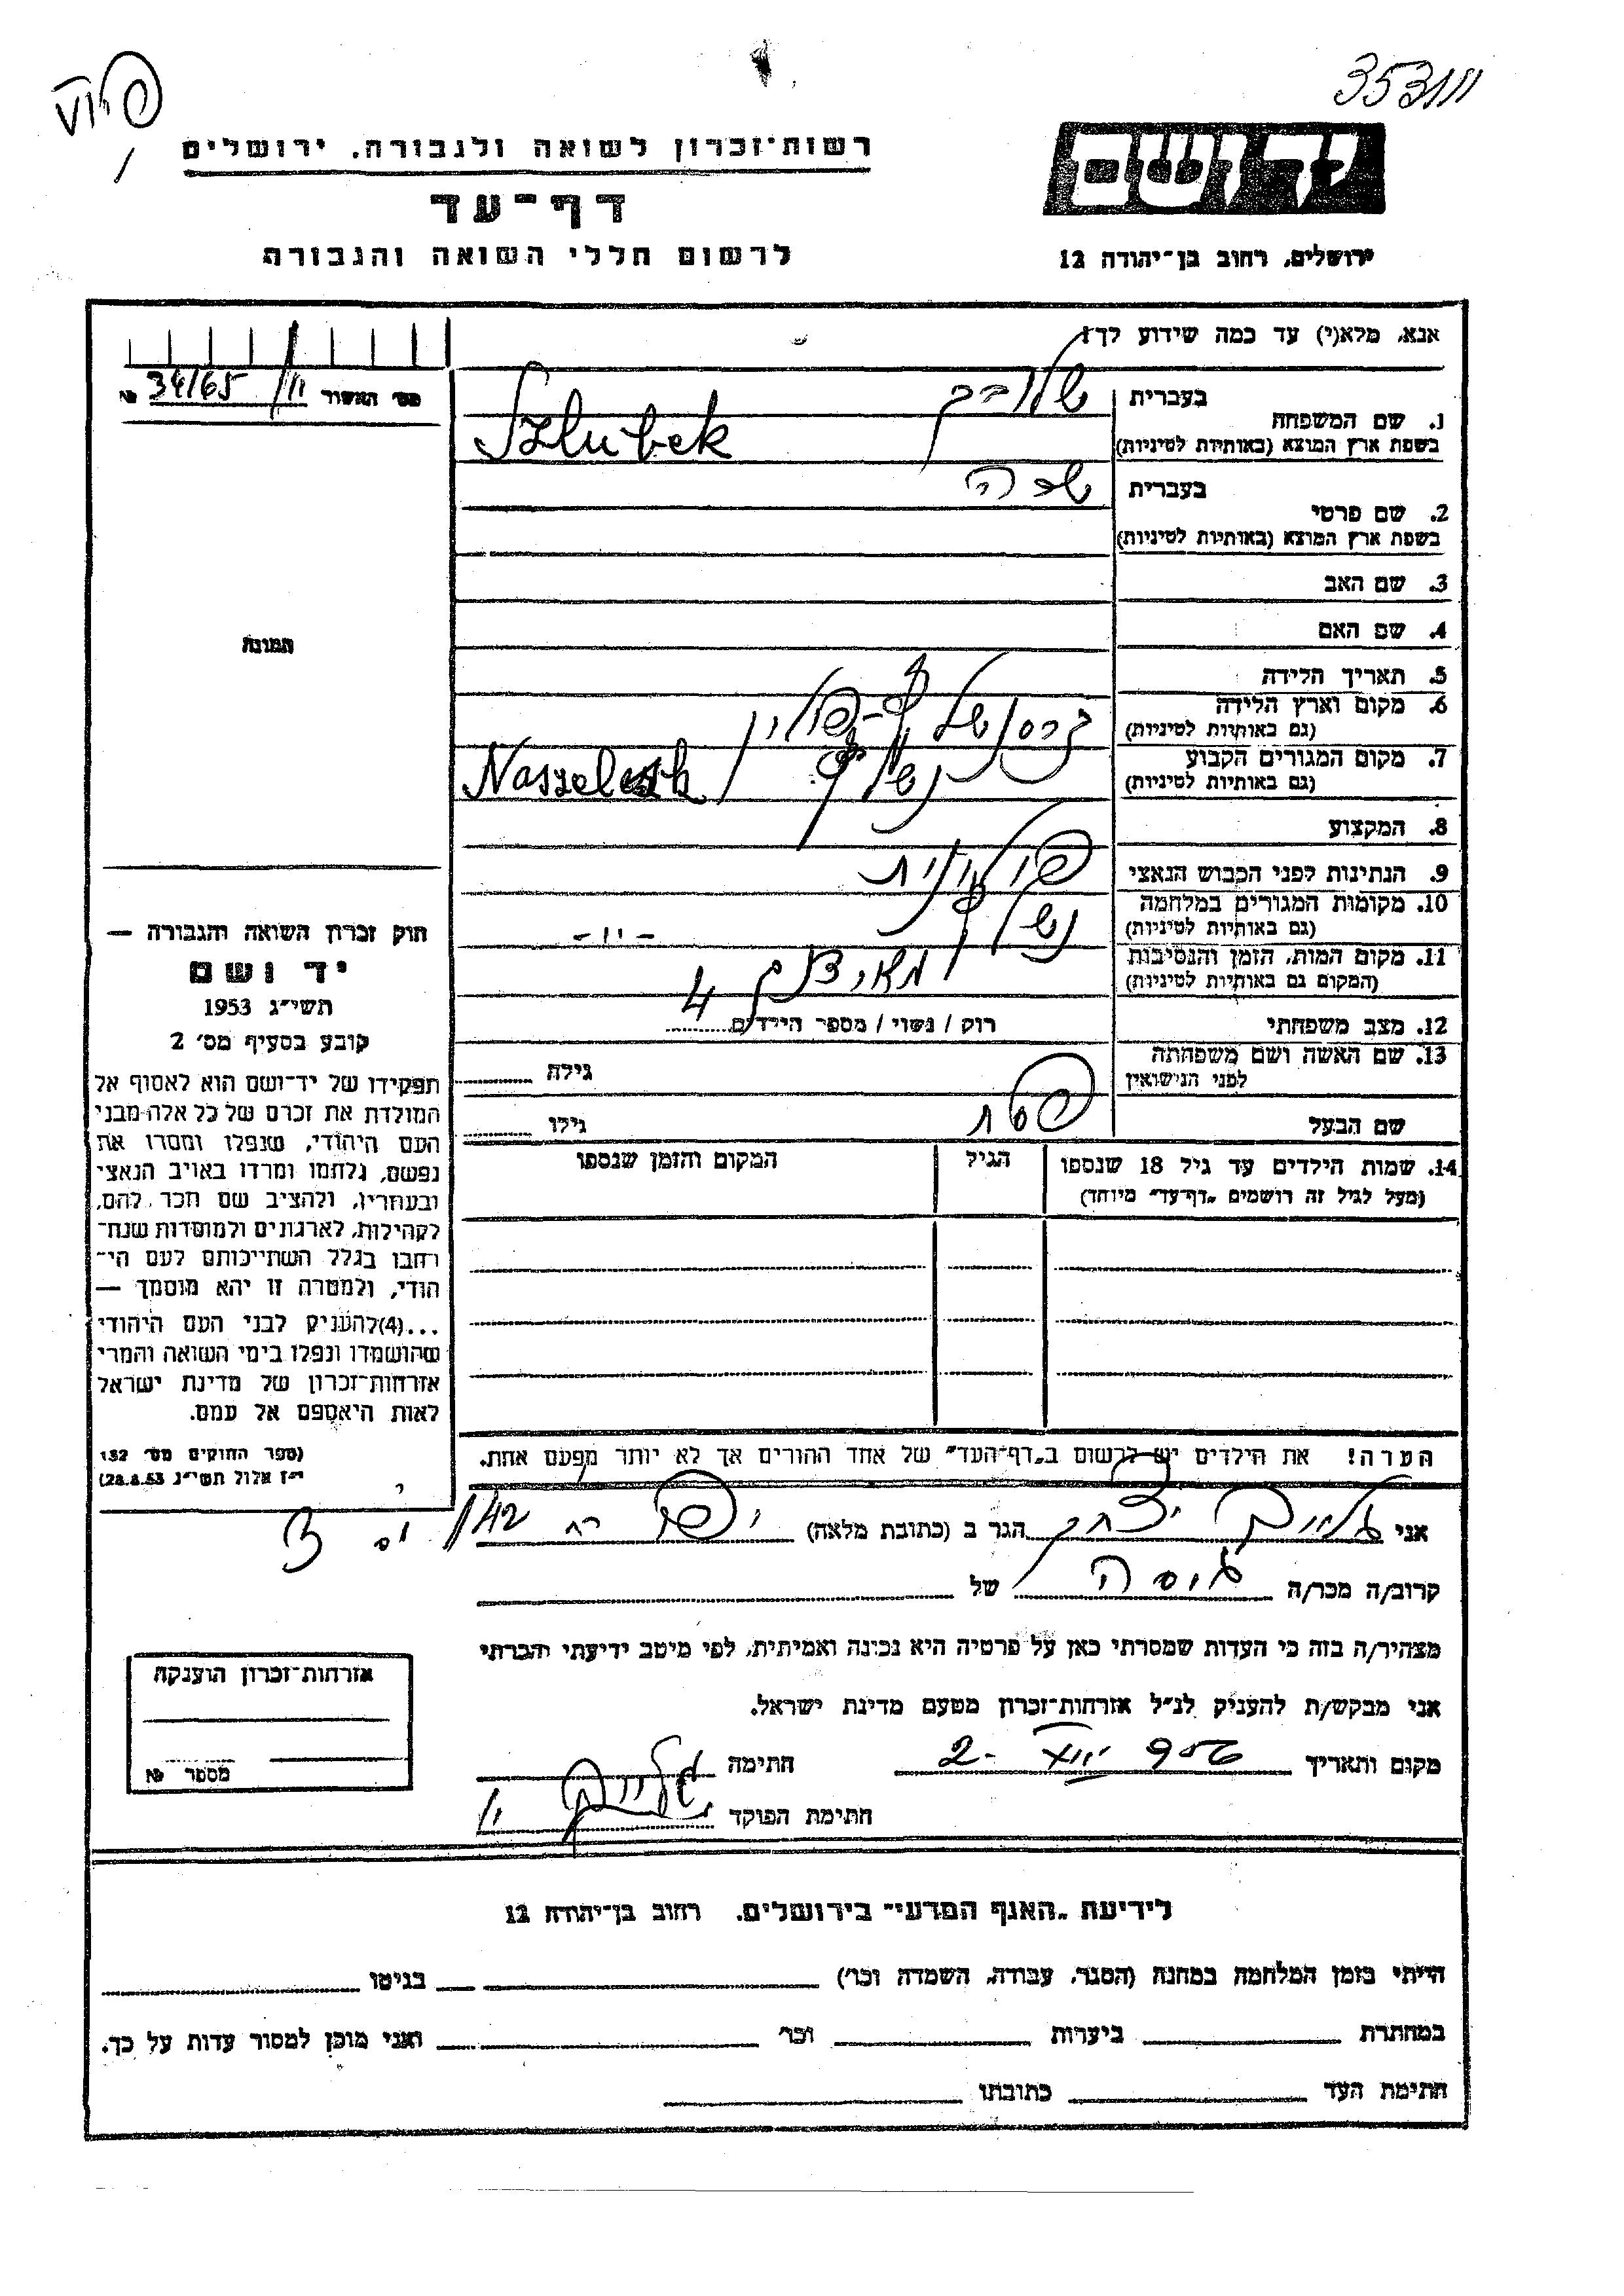 353111
רשות־זכרון לשואה ולגבורה. ירושלים
דף־עד
לרשום חללי השואה והגבורה
יד ושם
ירושלים, רחוב בן־יהודה 12
אנא, מלא(י) עד כמה שידוע לך!
מס׳ האשור № 34/65
בעברית
1. שם המשפחה
בשפת ארץ המוצא (באותיות לטיניות) Szlubek
בעברית
2. שם פרטי
בשפת ארץ המוצא (באותיות לטיניות)
3. שם האב
4. שם האם
תמונה
5. תאריך הלידה
6. מקום וארץ הלידה
(גם באותיות לטיניות)
7. מקום המגורים הקבוע
(גם באותיות לטיניות)
8. המקצוע
9. הנתינות לפני הכבוש הנאצי
10. מקומות המגורים במלחמה
(גם באותיות לטיניות) -״-
11. מקום המות, הזמן והנסיבות
(המקום גם באותיות לטיניות)
12. מצב משפחתי רוק / נשוי / מספר הילדים 4
13. שם האשה ושם משפחתה
לפני הנישואין גילה
שם הבעל פסח גילו
14. שמות הילדים עד גיל 18 שנספו הגיל המקום והזמן שנספו
(מעל לגיל זה רושמים „דף־עד״ מיוחד)
חוק זכרון השואה והגבורה —
יד ושם
תשי״ג 1953
קובע בסעיף מס׳ 2
תפקידו של יד־ושם הוא לאסוף אל
המולדת את זכרם של כל אלה מבני
העם היהודי, שנפלו ומסרו את
נפשם, נלחמו ומרדו באויב הנאצי
ובעוזריו, ולהציב שם וזכר להם,
לקהילות, לארגונים ולמוסדות שנח־
רחבו בגלל השתייכותם לעם הי־
הודי, ולמטרה זו יהא מוסמך —
...(4)להעניק לבני העם היהודי
שהושמדו ונפלו בימי השואה והמרי
אזרחות־זכרון של מדינת ישראל
לאות היאספם אל עמם.
(ספר החוקים מס׳ 132
י״ז אלול תשי״ג 28.8.53)
הערה! את הילדים יש לרשום ב„דף־העד״ של אחד ההורים אך לא יותר מפעם אחת.
אני יצחק הגר ב (כתובת מלאה) יפו
קרוב/ה מכר/ה גיסה של
מצהיר/ה בזה כי העדות שמסרתי כאן על פרטיה היא נכונה ואמיתית, לפי מיטב ידיעתי והכרתי
אני מבקש/ת להעניק לנ״ל אזרחות־זכרון מטעם מדינת ישראל.
מקום ותאריך חתימה
חתימת הפוקד
אזרחות־זכרון הוענקה
מספר №
לידיעת „האגף המדעי״ בירושלים. רחוב בן־יהודה 12
הייתי בזמן המלחמה במחנה (הסגר, עבודה, השמדה וכו׳) בגיטו
במחתרת ביערות וכו׳ ואני מוכן למסור עדות על כך.
חתימת העד כתובתו